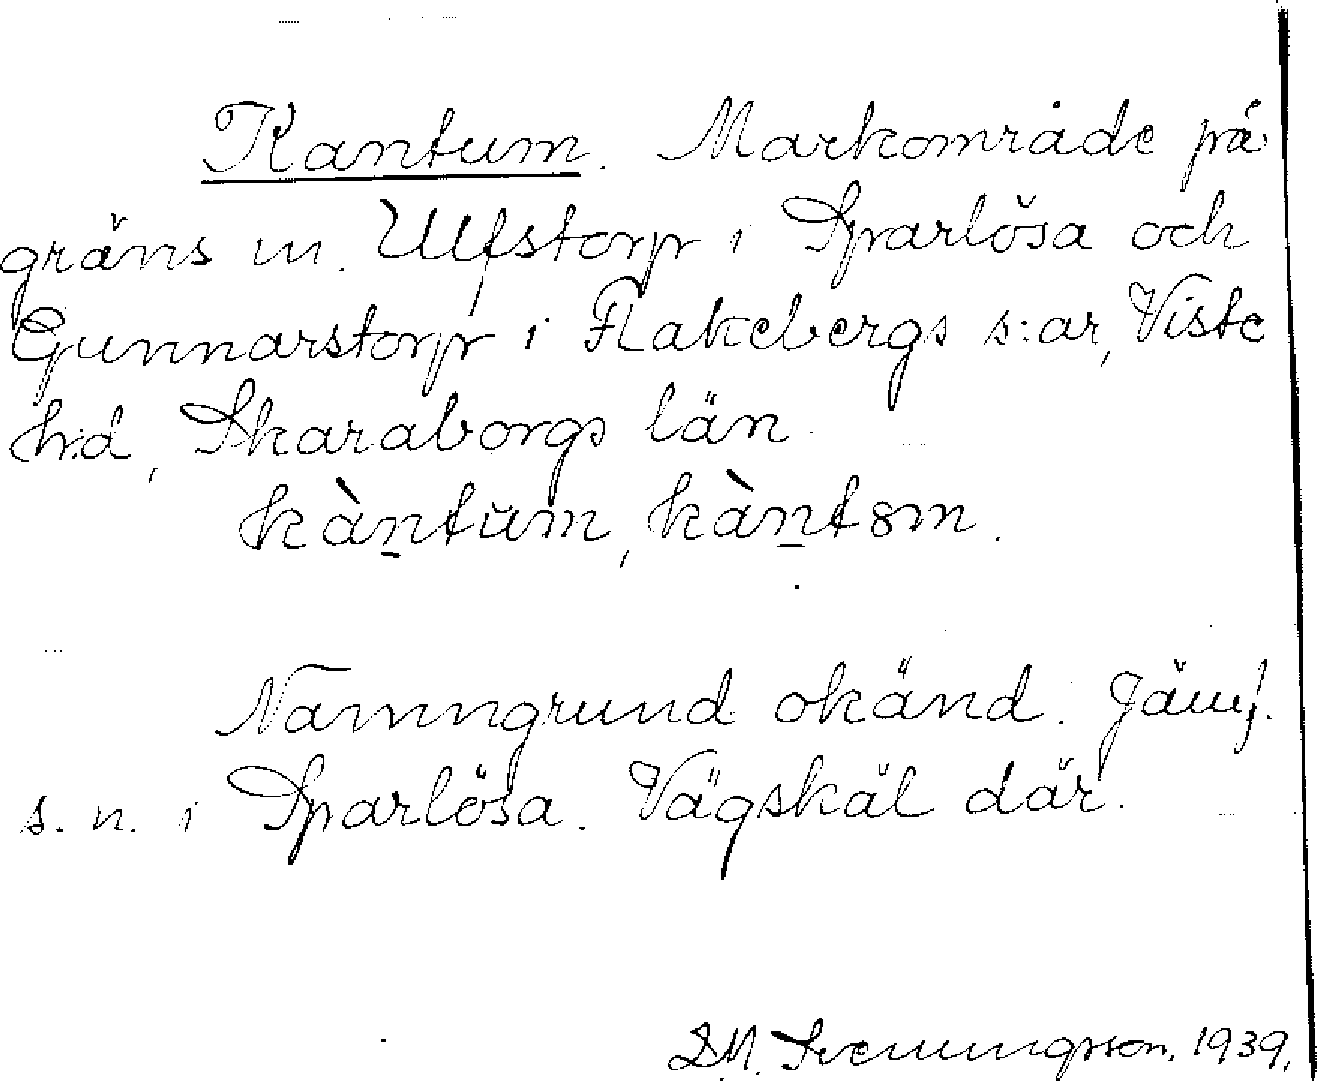 Kantum. Markområde på
gräns m. Ulfstorp i Sparlösa och
Gunnarstorp i Flakebergs s:ar, Viste
h:d, Skaraborgs län.
kàntum, kàntəm.
Namngrund okänd. Jämf.
s. n. i Sparlösa. Vägskäl där.
D.M. Svenungsson. 1939.